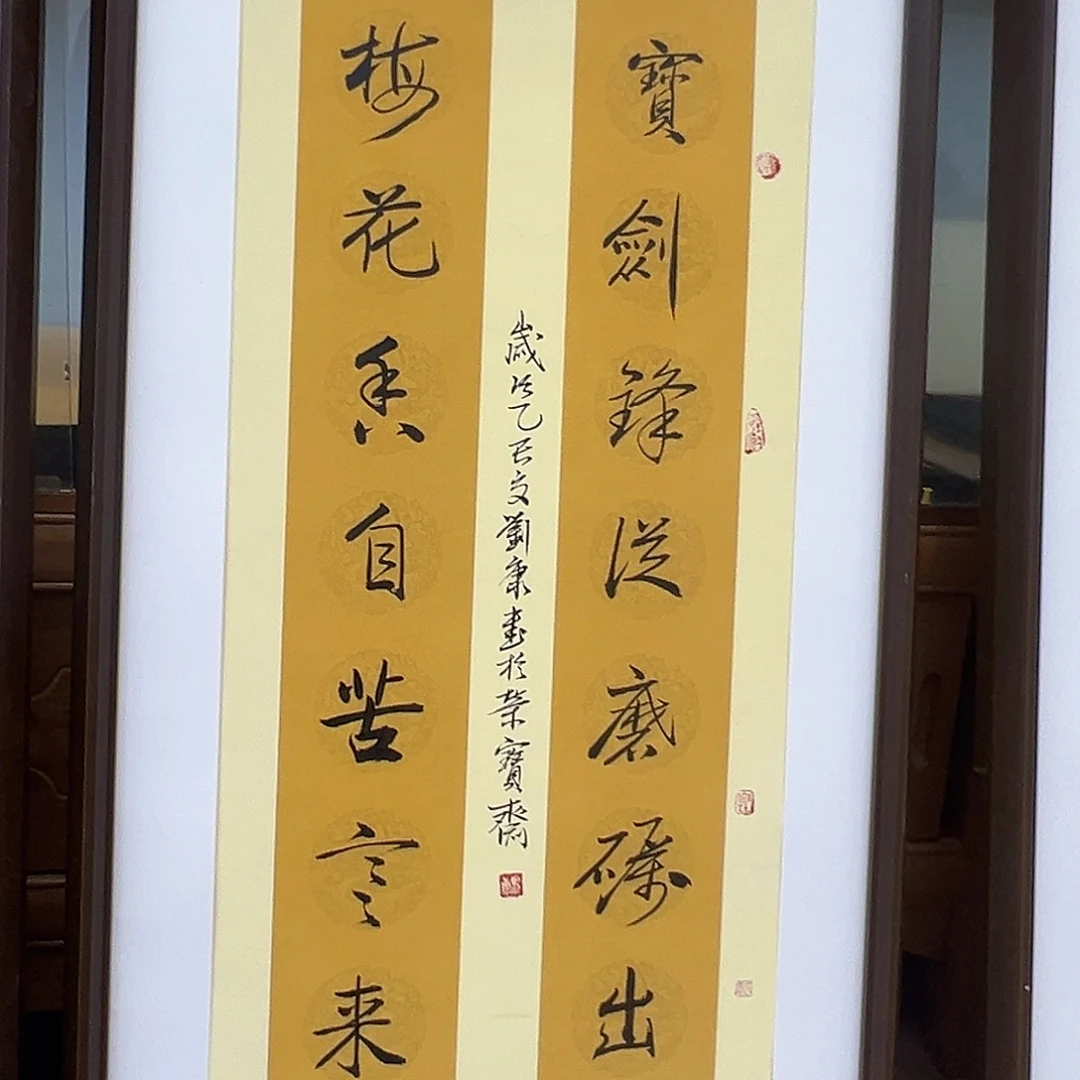 寶劍鋒從磨礪出
梅花香自苦寒来
歲次乙巳夏劉康書於榮寶齋